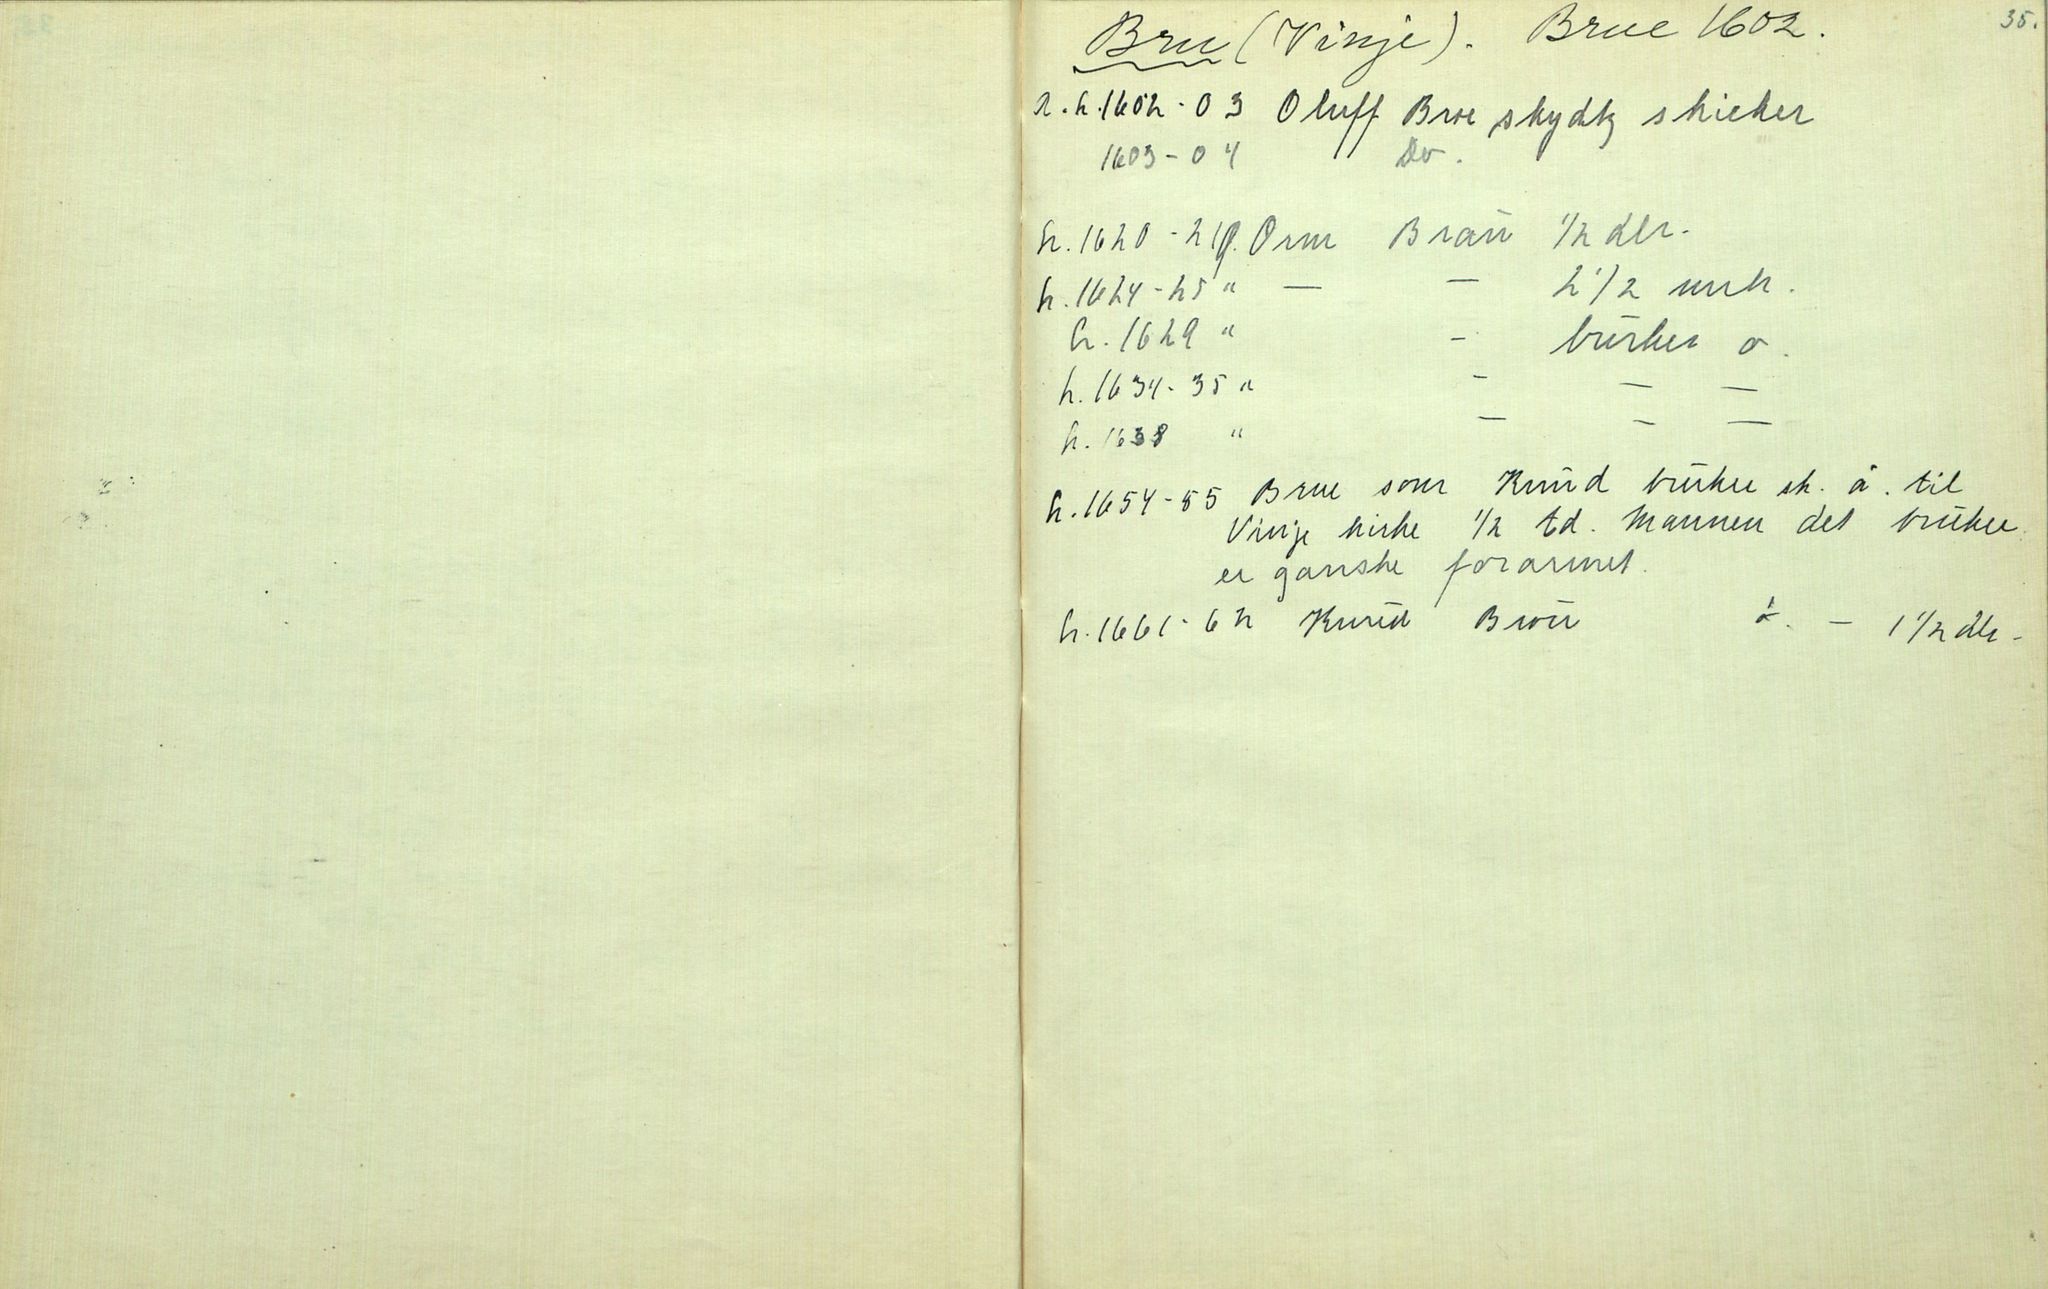 35.
Bru (Vinje). Brue 1602.
R.h. 1602-03 Oluff Broe skydtz skicker
1603-04 Do.
h. 1620-21 Orm Braŭ 1/2 dlr.
h. 1624-25 " — — 2 1/2 mrk.
h. 1629 " - brŭker o.
h. 1634-35 " - — —
h. 1638 " — — —
h. 1654-55 Brue som Knŭd brŭker sk. å. til
Vinje kirke 1/2 td. Mannen det brŭker
er ganske forarmet.
h. 1661-62 Knŭd Broŭ å. — 1 1/2 dlr -